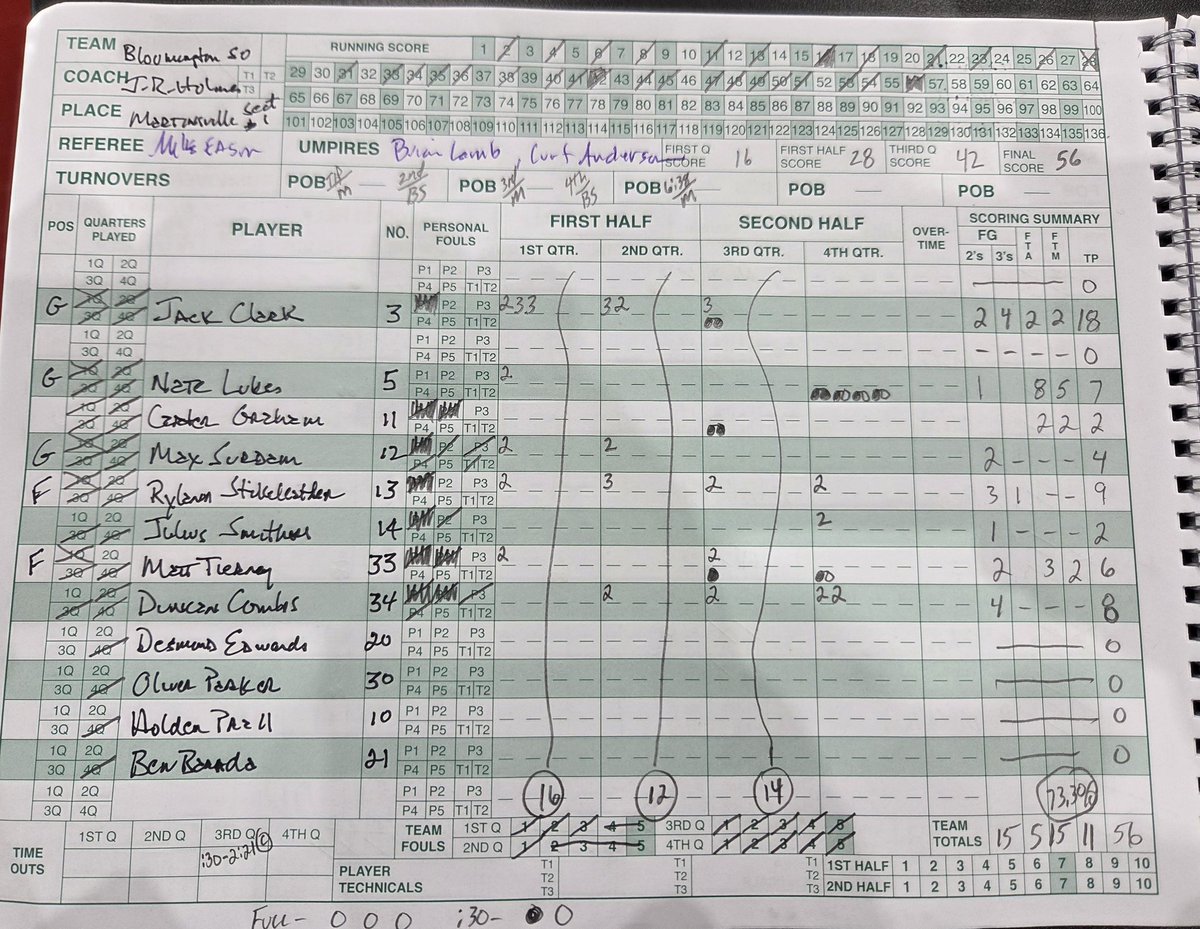 TEAM Bloomington SO RUNNING SCORE 1 2 3 4 5 6 7 8 9 10 11 12 13 14 15 16 17 18 19 20 21 22 23 24 25 26 27 28
COACH J.R. Holmes T1 T2 T3 29 30 31 32 33 34 35 36 37 38 39 40 41 42 43 44 45 46 47 48 49 50 51 52 53 54 55 56 57 58 59 60 61 62 63 64
65 66 67 68 69 70 71 72 73 74 75 76 77 78 79 80 81 82 83 84 85 86 87 88 89 90 91 92 93 94 95 96 97 98 99 100
PLACE Martinsville Sect 1 101 102 103 104 105 106 107 108 109 110 111 112 113 114 115 116 117 118 119 120 121 122 123 124 125 126 127 128 129 130 131 132 133 134 135 136
REFEREE Mike Eason UMPIRES Brian Lamb, Curt Anderson FIRST Q SCORE 16 FIRST HALF SCORE 28 THIRD Q SCORE 42 FINAL SCORE 56
TURNOVERS POB M 2nd BS POB 3rd M 4th BS POB M POB POB
POS QUARTERS PLAYED PLAYER NO. PERSONAL FOULS FIRST HALF SECOND HALF OVER-TIME SCORING SUMMARY
1ST QTR. 2ND QTR. 3RD QTR. 4TH QTR. FG 2's 3's FTA FTM TP
1Q 2Q P1 P2 P3
3Q 4Q P4 P5 T1 T2 0
G 1Q 2Q 3Q 4Q Jack Clark 3 P2 P3 P4 P5 T1 T2 233 32 3 2 4 2 2 18
1Q 2Q P1 P2 P3
3Q 4Q P4 P5 T1 T2 - - - - 0
G 1Q 2Q 3Q 4Q Nate Lukes 5 P1 P2 P3 P4 P5 T1 T2 2 1 8 5 7
1Q 2Q 3Q 4Q Graham 11 P3 P4 P5 T1 T2 2 2 2
G 1Q 2Q 3Q 4Q Max Surdam 12 P2 P3 P4 P5 T1 T2 2 2 2 - - - 4
F 1Q 2Q 3Q 4Q Rylan Stikeleather 13 P2 P3 P4 P5 T1 T2 2 3 2 2 3 1 - - 9
1Q 2Q 3Q 4Q Julius Smithers 14 P2 P3 P4 P5 T1 T2 2 1 - - - 2
F 1Q 2Q 3Q 4Q Matt Tierney 33 P3 P4 P5 T1 T2 2 2 2 3 2 6
1Q 2Q 3Q 4Q Duncan Combs 34 P3 P4 P5 T1 T2 2 2 22 4 - - - 8
1Q 2Q 3Q 4Q Desmond Edwards 20 P1 P2 P3 P4 P5 T1 T2 0
1Q 2Q 3Q 4Q Oliver Parker 30 P1 P2 P3 P4 P5 T1 T2 0
1Q 2Q 3Q 4Q Holden 10 P1 P2 P3 P4 P5 T1 T2 0
1Q 2Q 3Q 4Q Ben 21 P1 P2 P3 P4 P5 T1 T2 0
1Q 2Q 3Q 4Q P1 P2 P3 P4 P5 T1 T2 16 12 14 73.3%
TIME OUTS 1ST Q 2ND Q 3RD Q 4TH Q TEAM FOULS 1ST Q 1 2 3 4 5 3RD Q 1 2 3 4 5 TEAM TOTALS 15 5 15 11 56
:30-2:21 C 2ND Q 1 2 3 4 5 4TH Q 1 2 3 4 5
PLAYER TECHNICALS T1 T2 T3 T1 T2 T3 T1 T2 T3 1ST HALF 1 2 3 4 5 6 7 8 9 10
2ND HALF 1 2 3 4 5 6 7 8 9 10
Full- 0 0 0 :30- 0